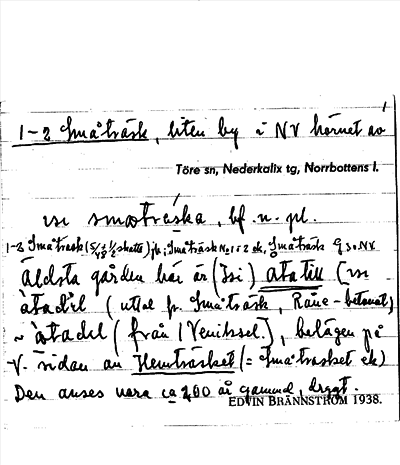 1
1-2 Småträsk, liten by i NV hörnet av
Töre sn, Nederkalix tg, Norrbottens l.
isi smɑstráska, bf. n. pl.
1-2 Småträsk (5/48 skatte) jb; Småträsk No 1 o 2 ek, Småträsk
Äldsta gården här är (Isi) atatill (isi
àtadil (uttal fr. Småträsk, Råne-betonat)
~ àtadil (från 1 Venitsel.), belägen på
V. sidan av Hemträsket (= Småträsket ek)
Den anses vara ca 200 år gammal, drygt.
EDVIN BRÄNNSTRÖM 1938.